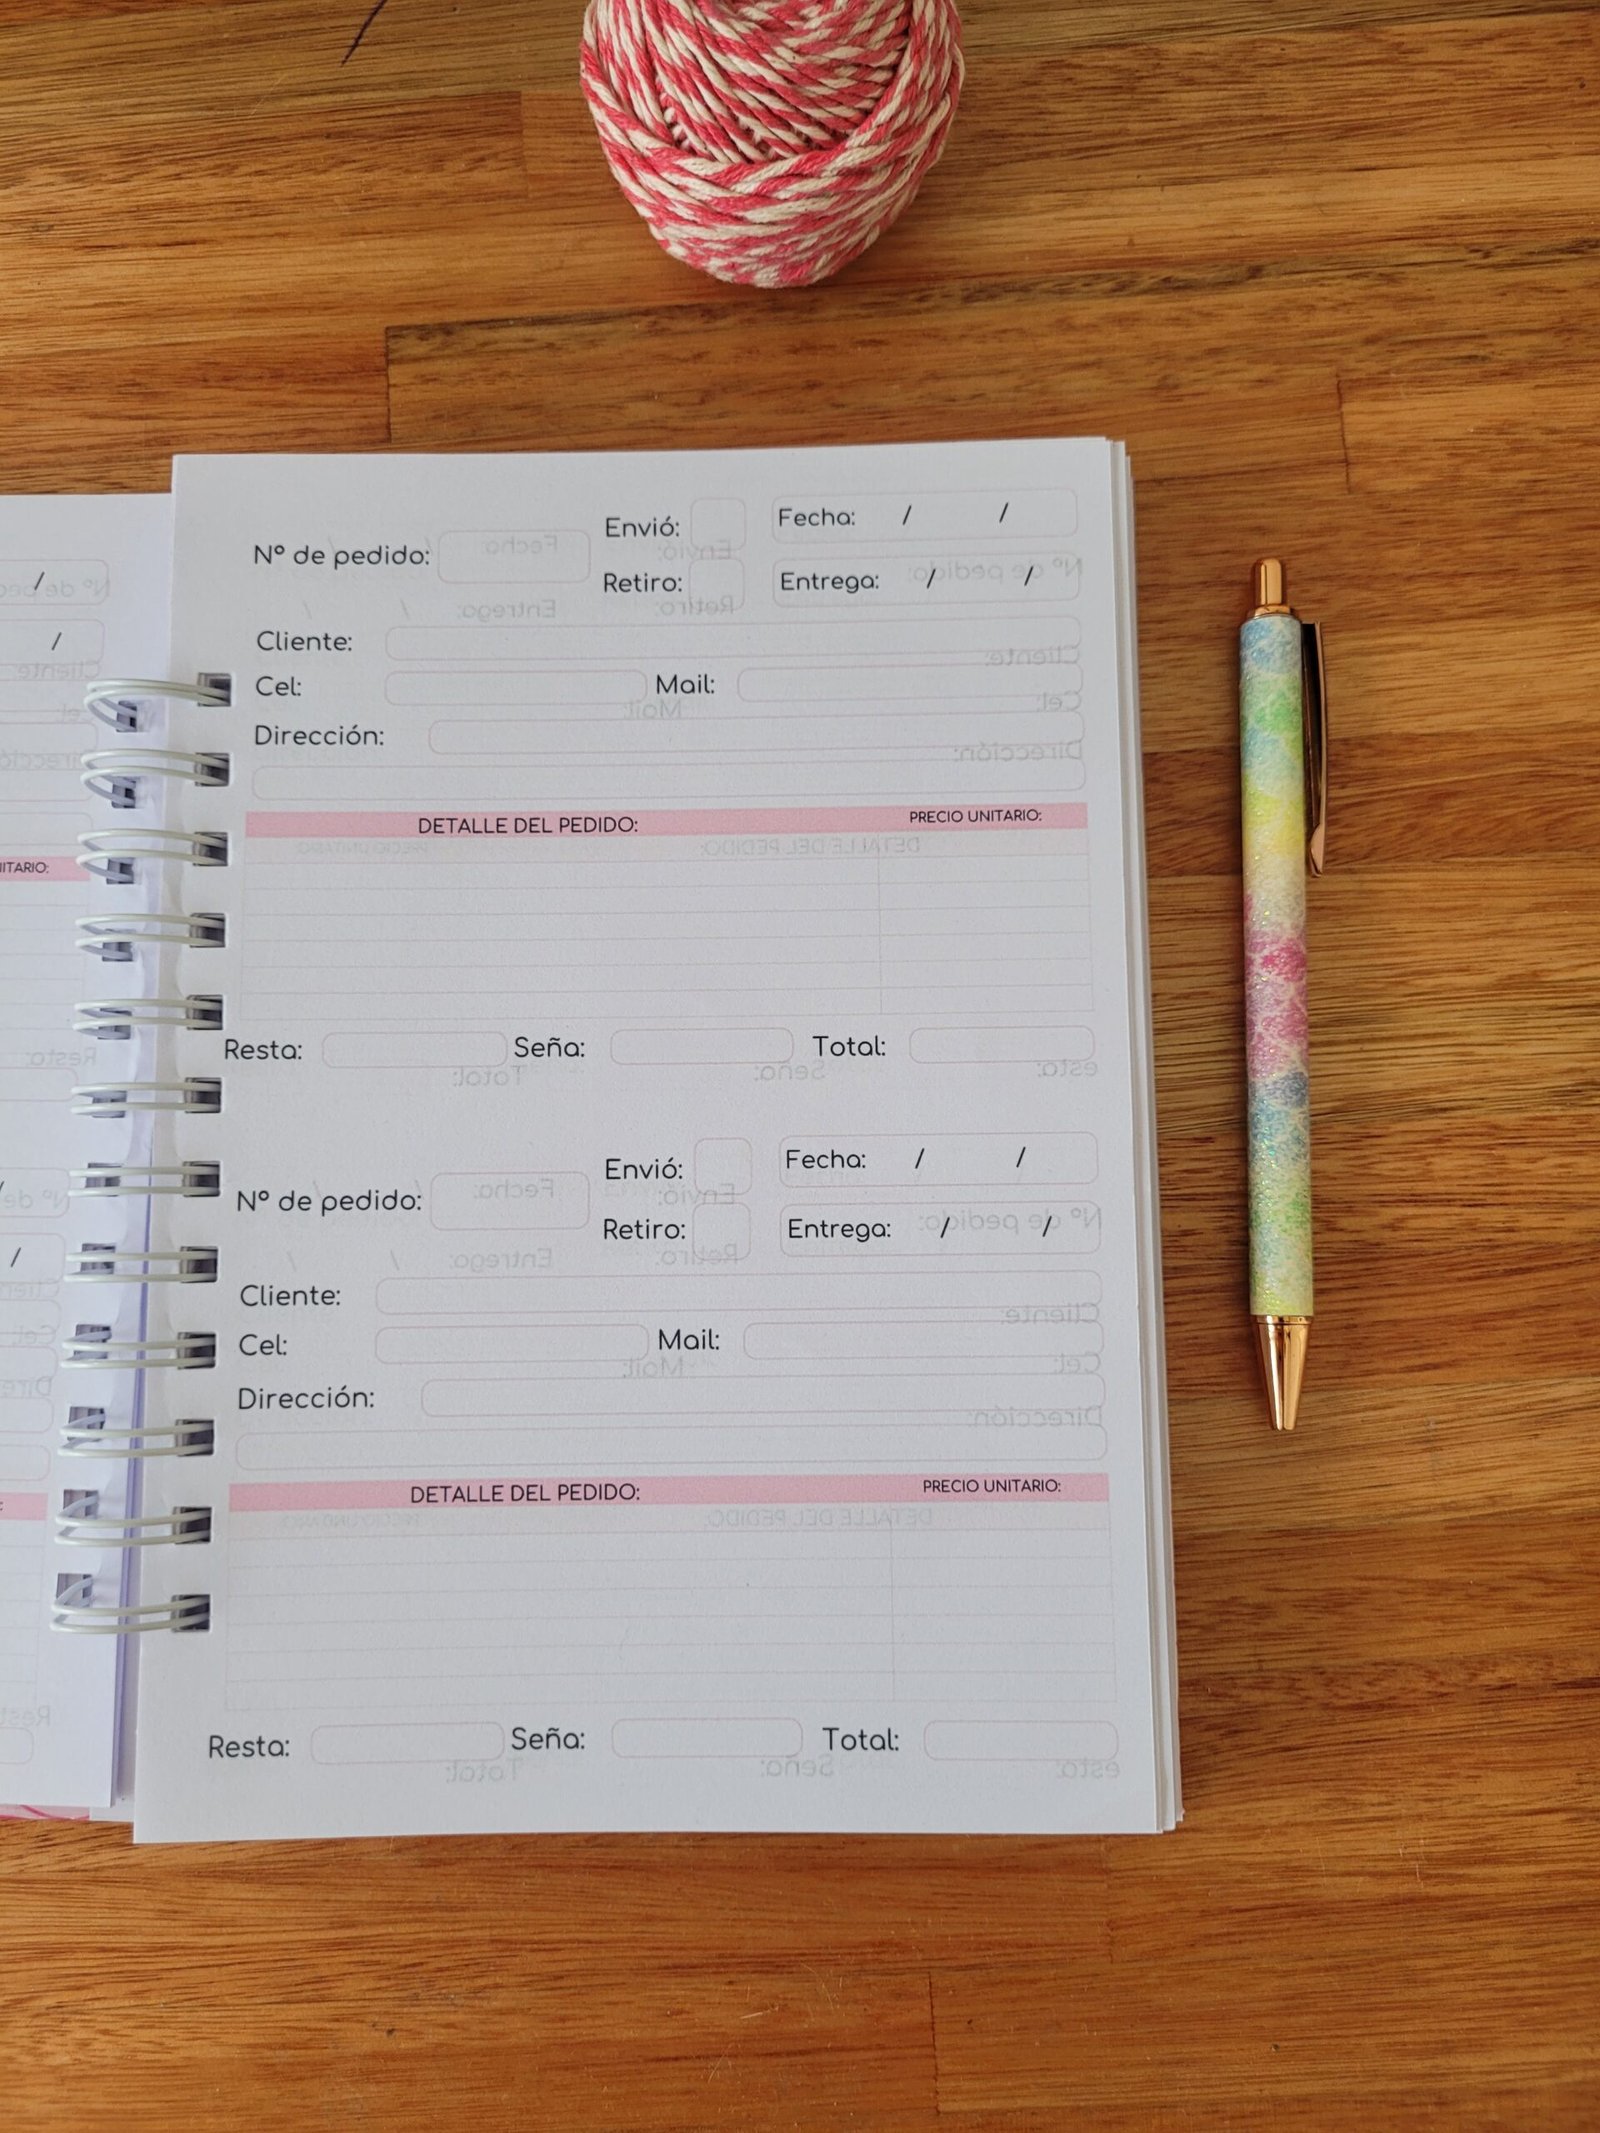 Envió: Fecha: / /
Nº de pedido:
Retiro: Entrega: / /
Cliente:
Cel: Mail:
Dirección:
DETALLE DEL PEDIDO: PRECIO UNITARIO:
Resta: Seña: Total:
Envió: Fecha: / /
Nº de pedido:
Retiro: Entrega: / /
Cliente:
Cel: Mail:
Dirección:
DETALLE DEL PEDIDO: PRECIO UNITARIO:
Resta: Seña: Total: